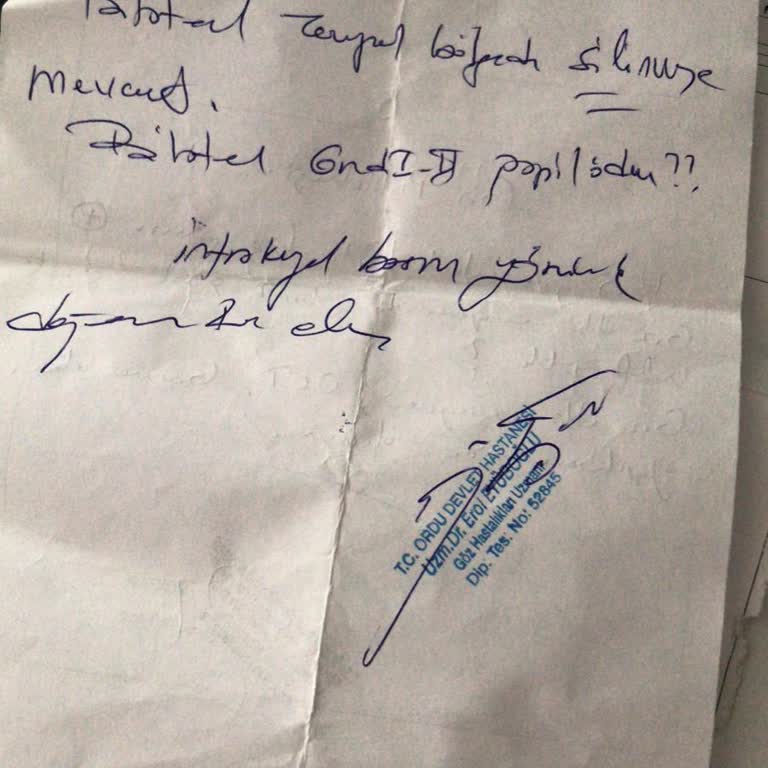 Bilateral Temporal bölgede silinme
mevcut.
Bilateral Grad I-II papilödem??
intrakranyal basınç yönünden
T.C. ORDU DEVLET HASTANESİ
Uzm.Dr. Erol EYÜBOĞLU
Göz Hastalıkları Uzmanı
Dip. Tes. No: 52845